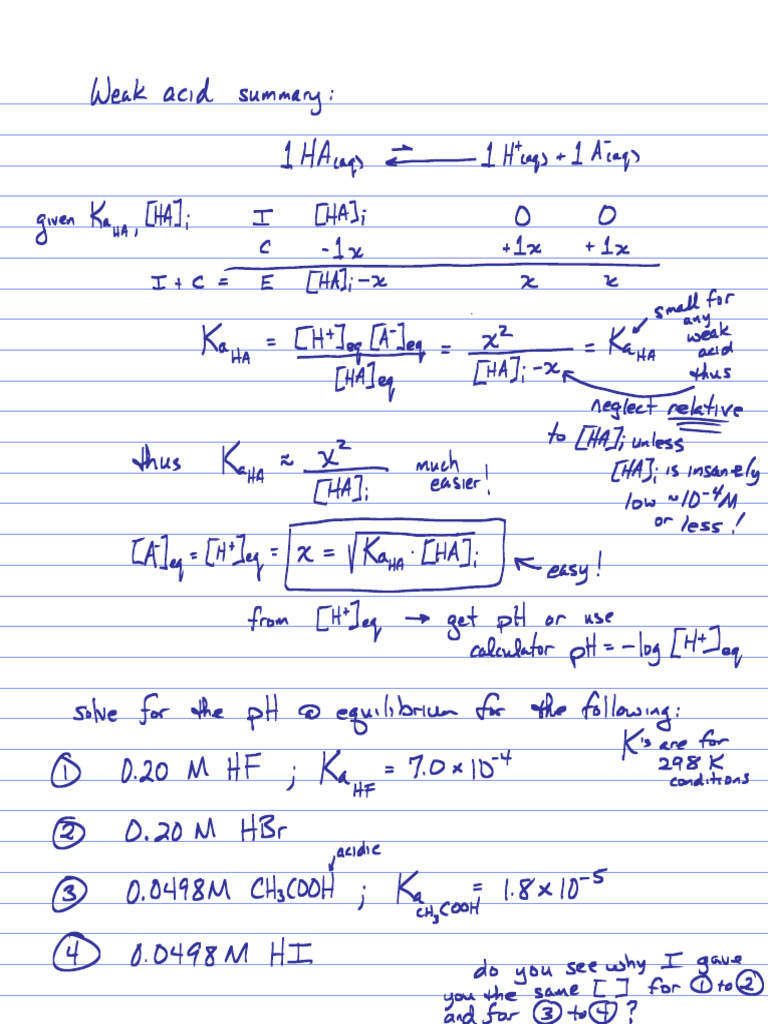 Weak acid summary:
1 HA(aq) ⇌ 1 H⁺(aq) + 1 A⁻(aq)
given Ka HA, [HA]i I [HA]i 0 0
C -1x +1x +1x
I + C = E [HA]i - x x x
Ka HA = [H⁺]eq [A⁻]eq / [HA]eq = x² / [HA]i - x = Ka HA
small for
any
weak
acid
thus
neglect relative
to [HA]i unless
[HA]i is insanely
low ~10⁻⁴ M
or less!
thus Ka HA ≈ x² / [HA]i much
easier!
[A⁻]eq = [H⁺]eq = x = √Ka HA · [HA]i ← easy!
from [H⁺]eq → get pH or use
calculator pH = -log [H⁺]eq
solve for the pH @ equilibrium for the following:
K's are for
298 K
conditions
① 0.20 M HF ; Ka HF = 7.0 × 10⁻⁴
② 0.20 M HBr
acidic
③ 0.0498 M CH₃COOH ; Ka CH₃COOH = 1.8 × 10⁻⁵
④ 0.0498 M HI
do you see why I gave
you the same [ ] for ① to ②
and for ③ to ④ ?